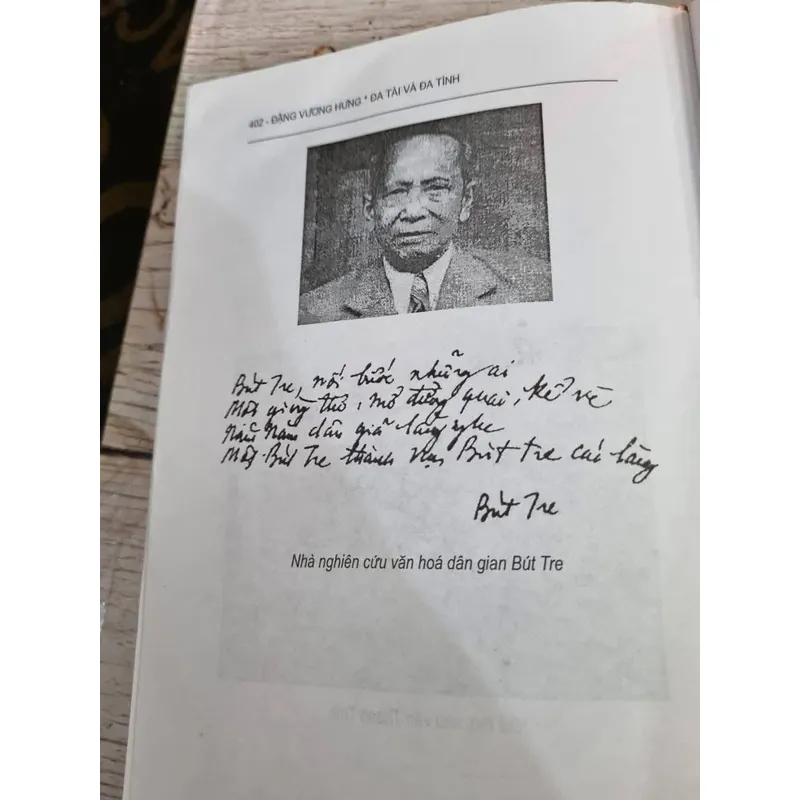 402 - ĐẶNG VƯƠNG HƯNG * ĐA TÀI VÀ ĐA TÌNH
Bút Tre, nối bước những ai
Một giọng thơ, mở đường quai, kể vè
Năm dân giã lắng nghe
Một Bút Tre thành vạn Bút Tre các làng
Bút Tre
Nhà nghiên cứu văn hoá dân gian Bút Tre